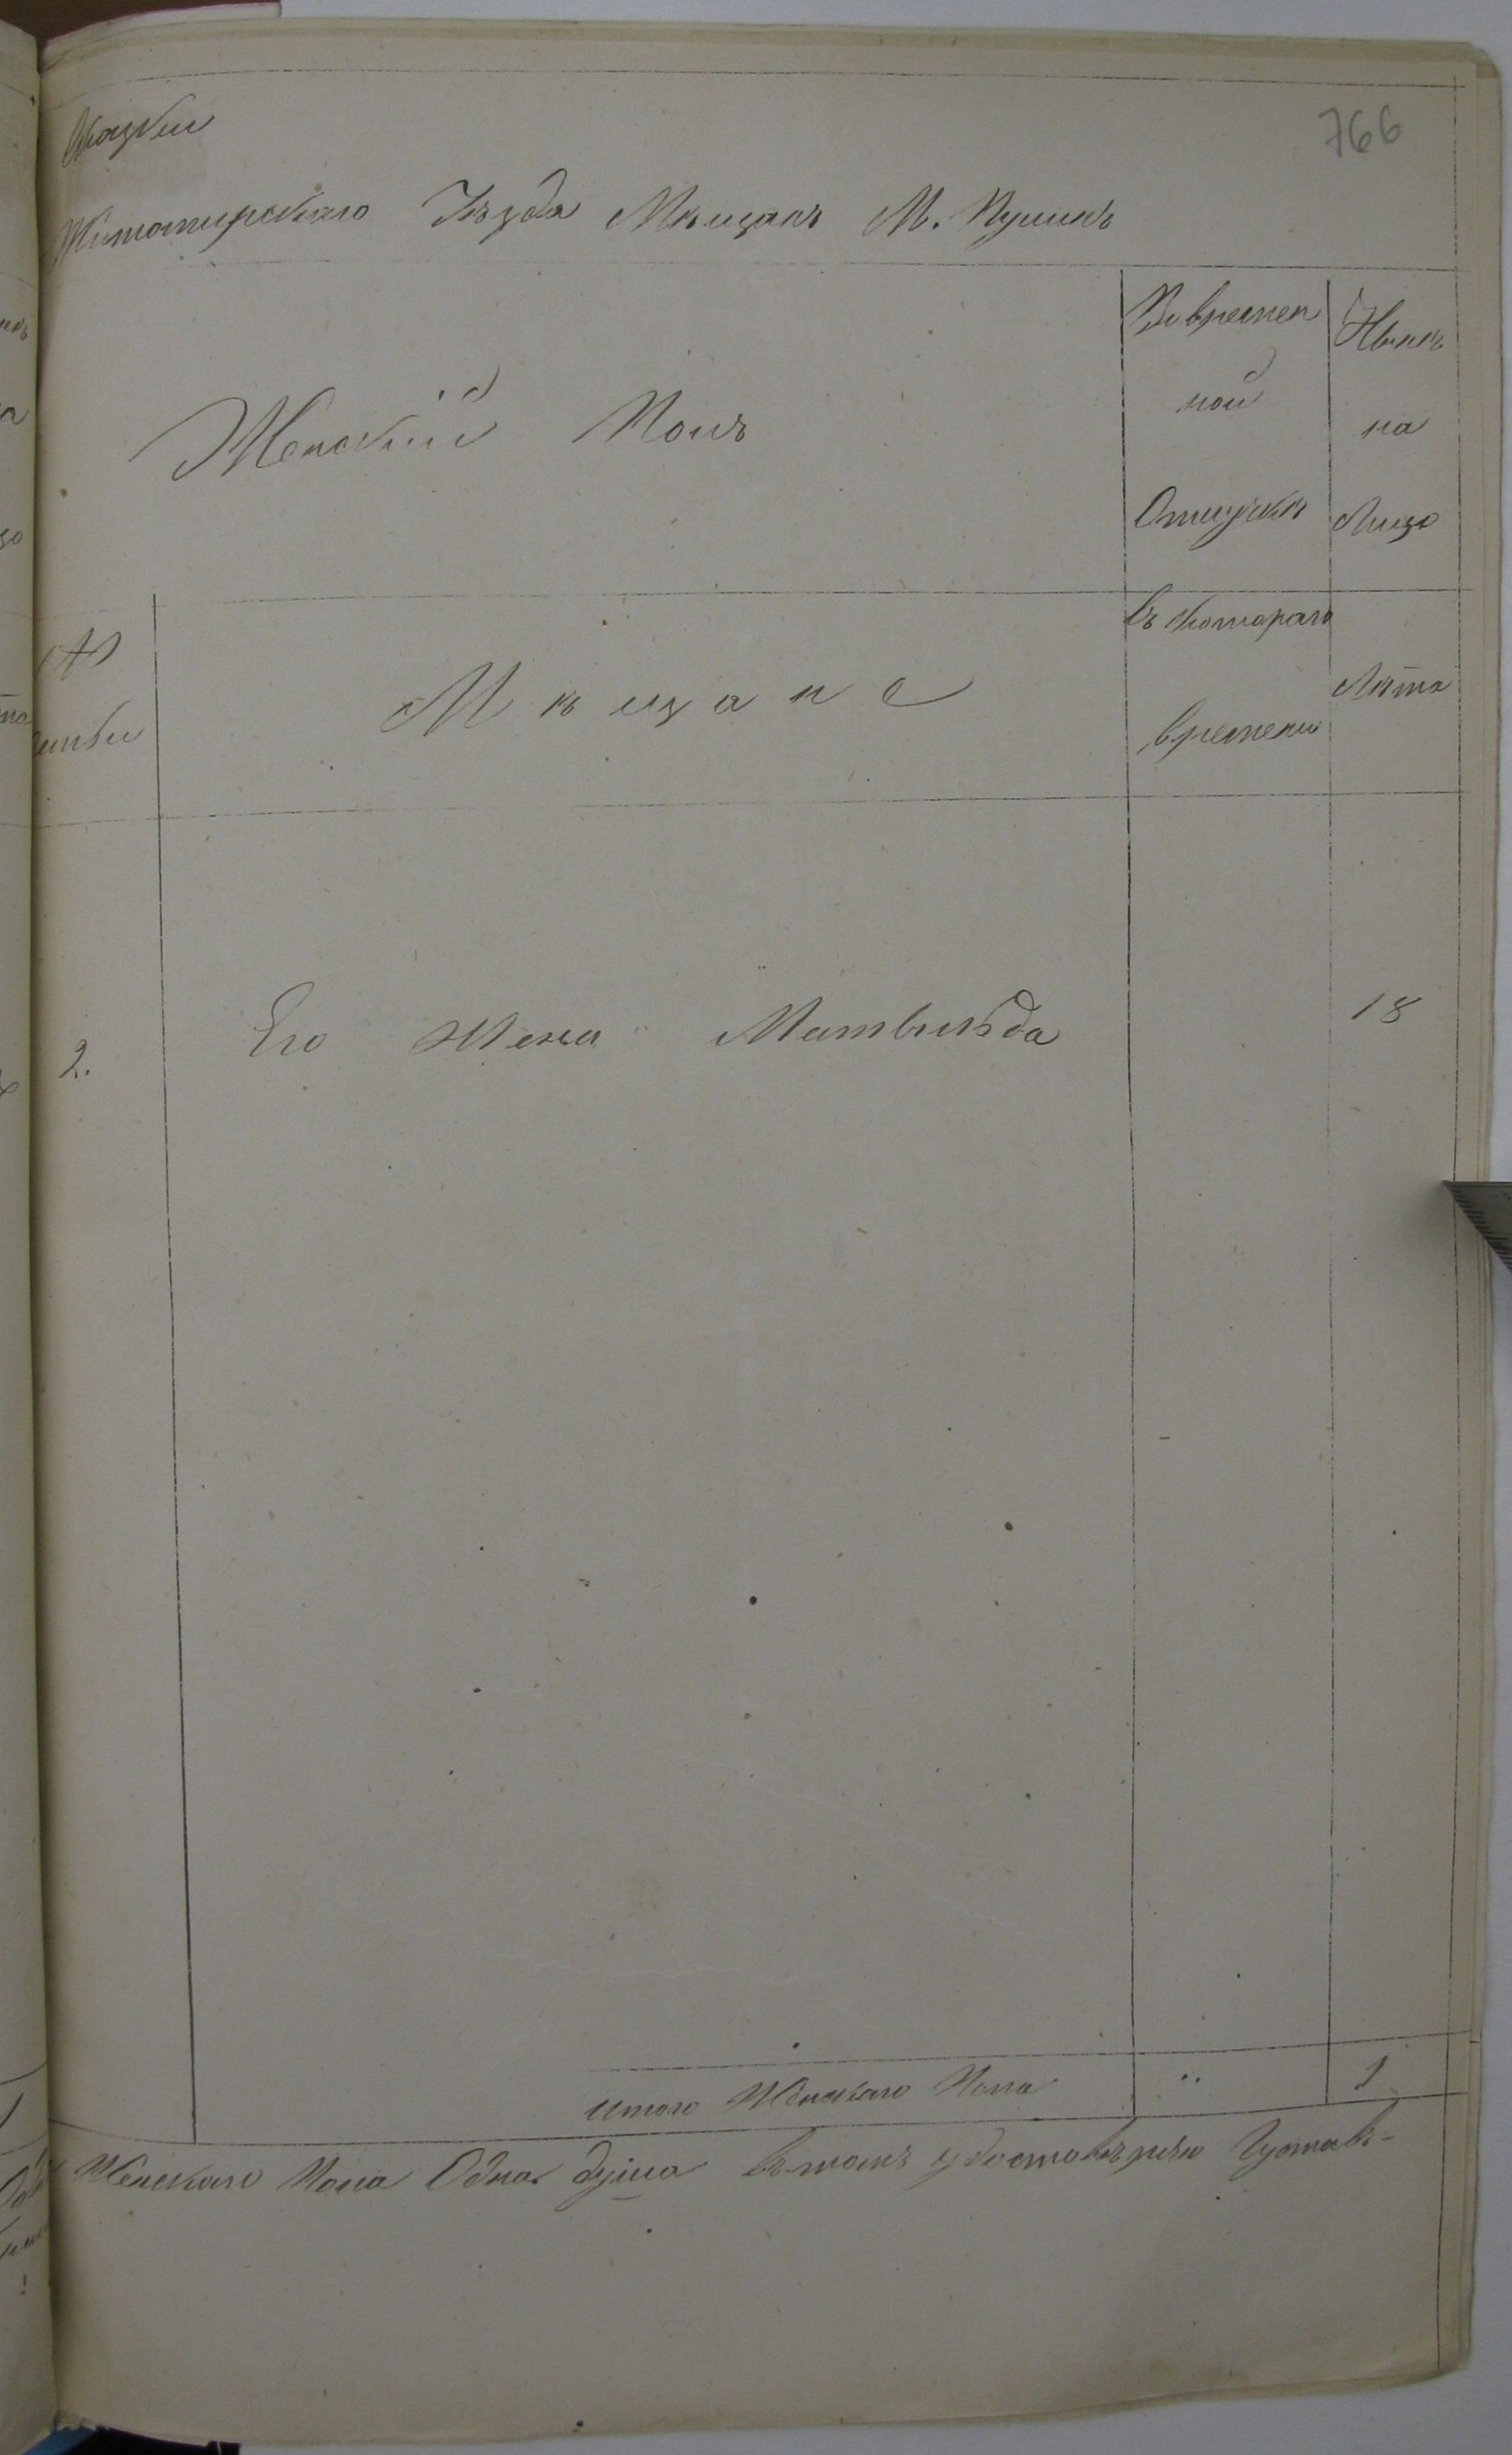 766
Сказки
Житомирскаго Уѣзда Мѣщанъ М. Пулинъ
Женский Полъ
Во времен
ной
Отлучкѣ
Нынѣ
на
Лицо
№
Мѣщане
съ котораго
времени
Лѣта
2. Его Жена Матвильда 18
Итого Женскаго Пола " 1
Женскаго Пола Одна душа въ томъ удостовѣряю Густавъ-